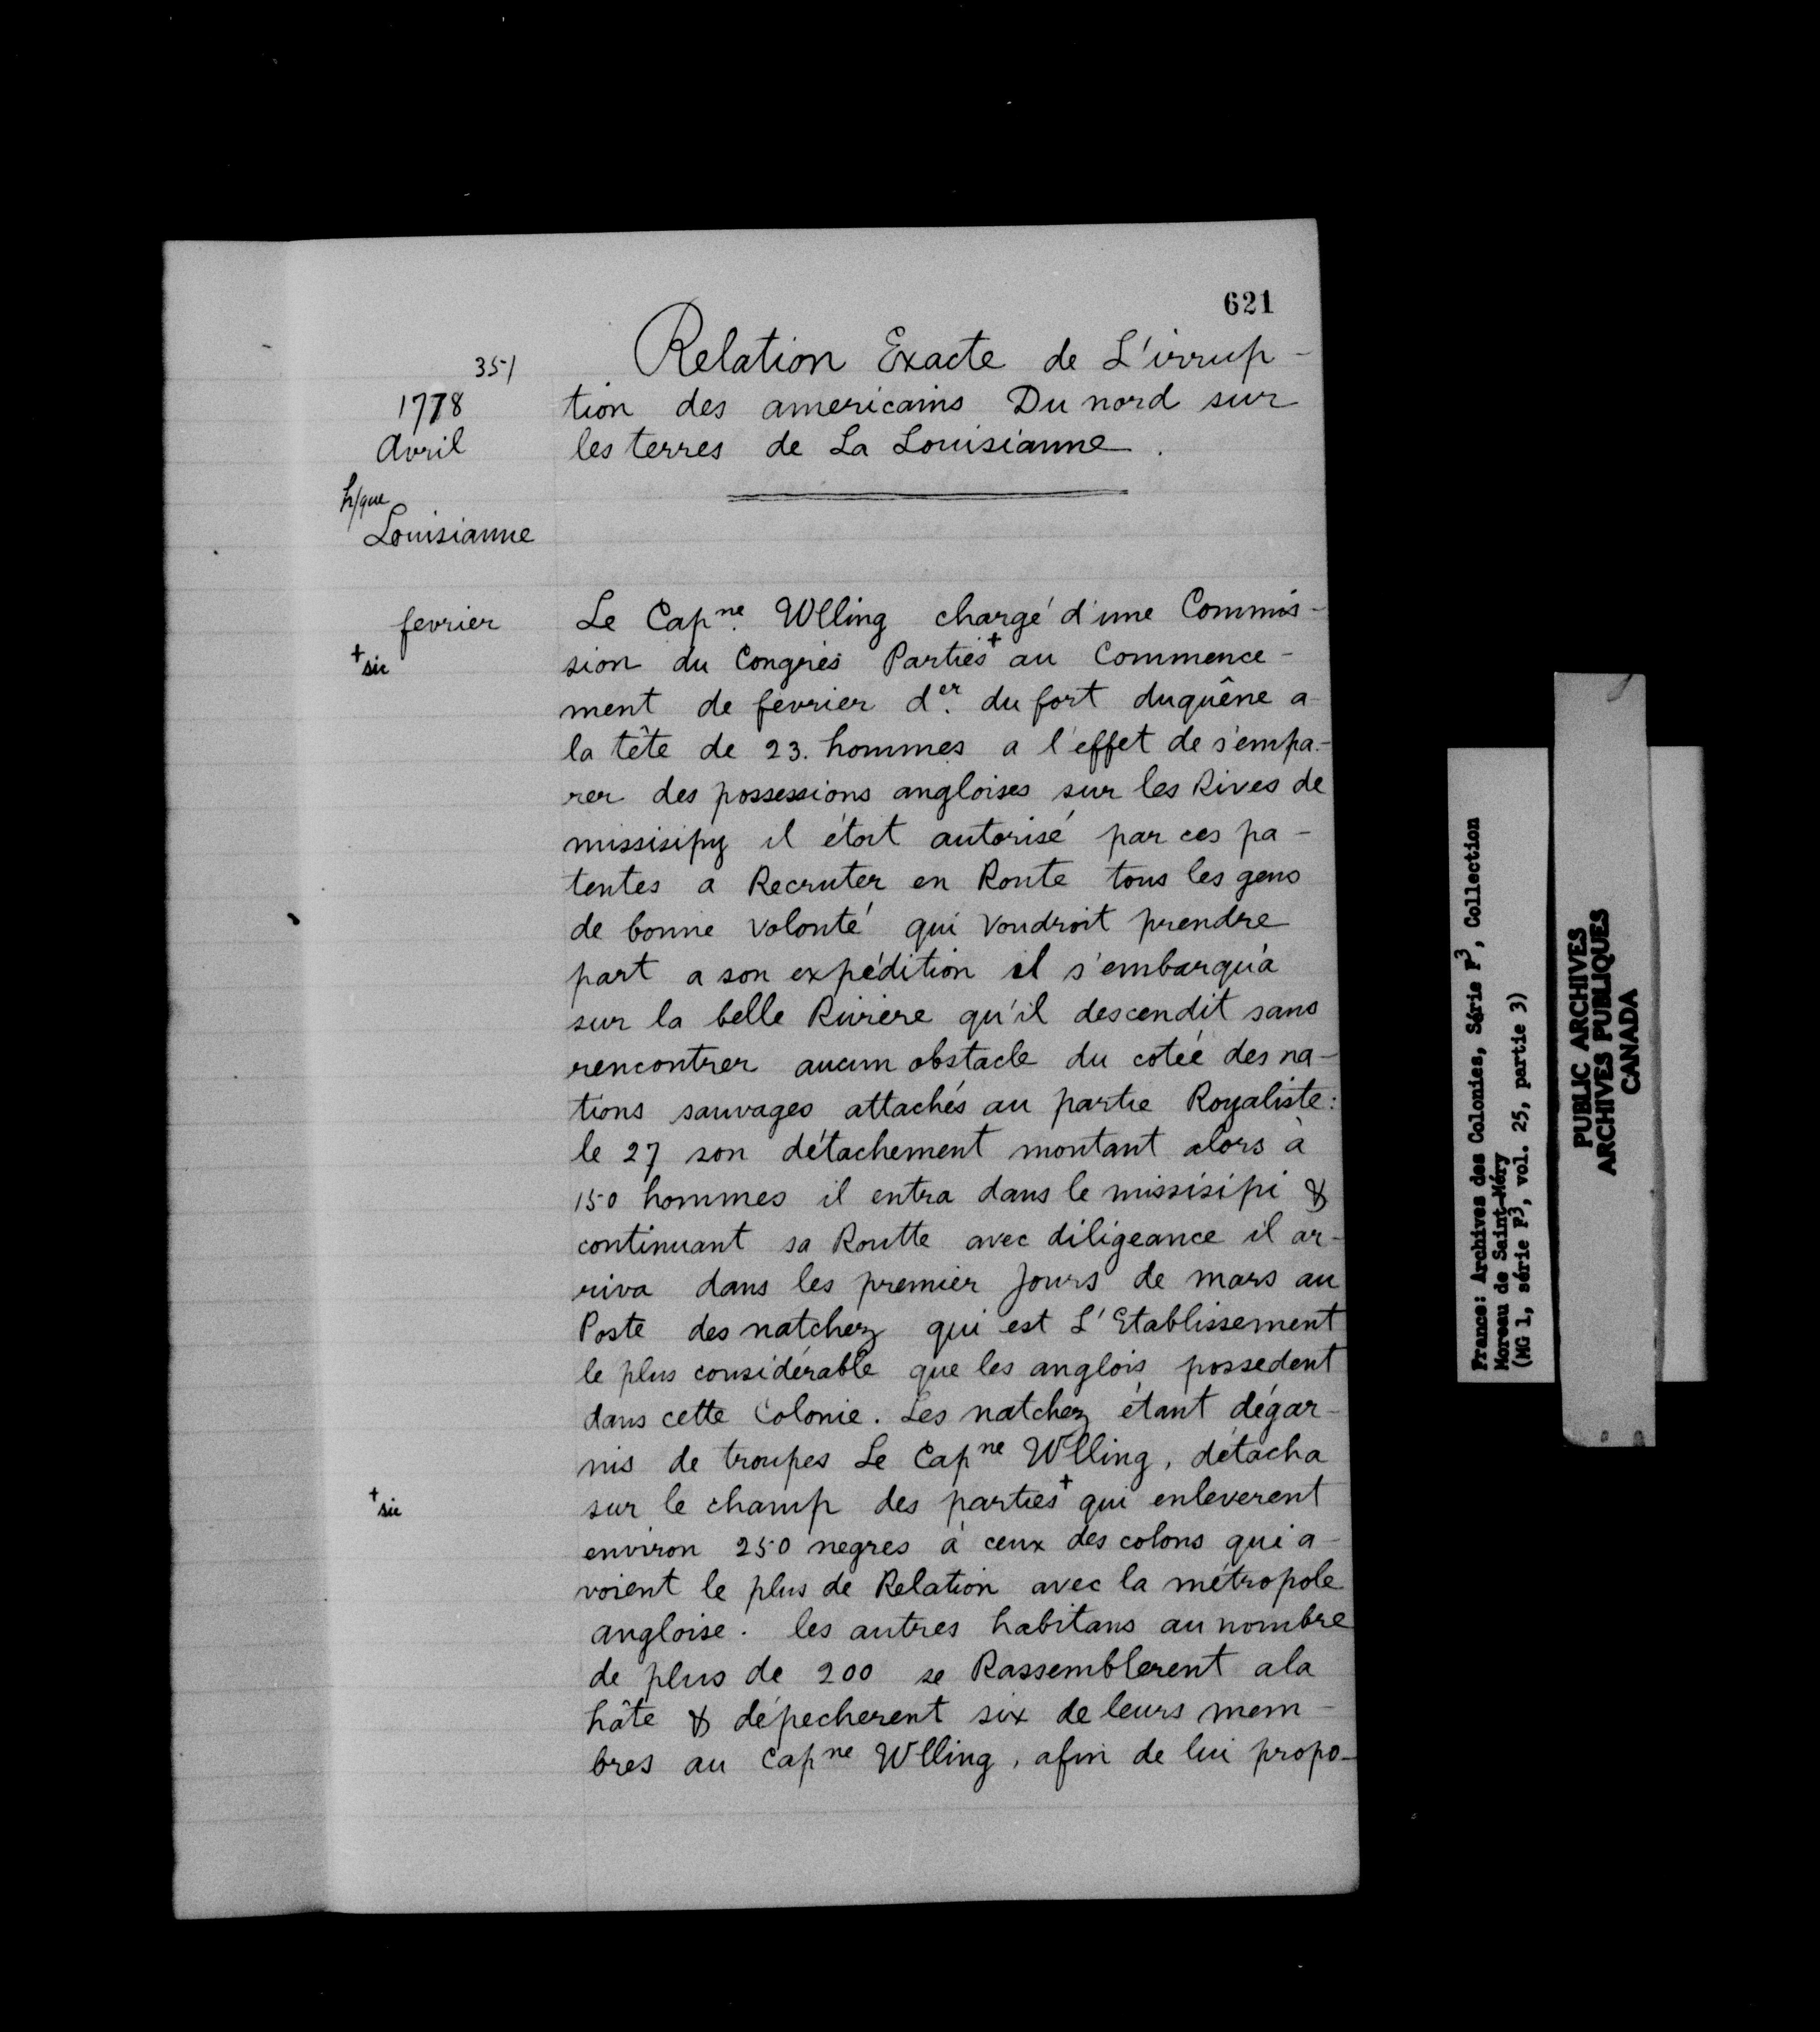 621
351
1778
Avril
h/que
Louisianne
Relation Exacte de L'irrup-
tion des americains Du nord sur
les terres de La Louisianne.
fevrier
+ sic
Le Capne. Wlling chargé d'une Commis-
sion du Congrès Parties+ au Commence-
ment de fevrier der. du fort duquêne a
la tête de 23. hommes a l'effet de s'empa-
rer des possessions angloises sur les Rives de
missisipy il étoit autorisé par ces pa-
tentes a Recruter en Route tous les gens
de bonne volonté qui voudroit prendre
part a son expédition il s'embarqu'a
sur la belle Rivière qu'il descendit sans
rencontrer aucun obstacle du cotée des na-
tions sauvages attachés au partie Royaliste:
le 27 son détachement montant alors à
150 hommes il entra dans le missisipi &
continuant sa Routte avec diligeance il ar-
riva dans les premier Jours de mars au
Poste des natchez qui est L'Etablissement
le plus considérable que les anglois possedent
dans cette Colonie. Les natchez étant dégar-
nis de troupes Le Capne Wlling, détacha
+ sic
sur le champ des parties+ qui enleverent
environ 250 negres à ceux des colons qui a-
voient le plus de Relation avec la métropole
angloise. les autres habitans au nombre
de plus de 200 se Rassemblerent ala
hâte & dépecherent six de leurs mem-
bres au Capne Wlling, afin de lui propo-
France: Archives des Colonies, Série F3, Collection
Moreau de Saint-Méry
(MG 1, série F3, vol. 25, partie 3)
PUBLIC ARCHIVES
ARCHIVES PUBLIQUES
CANADA